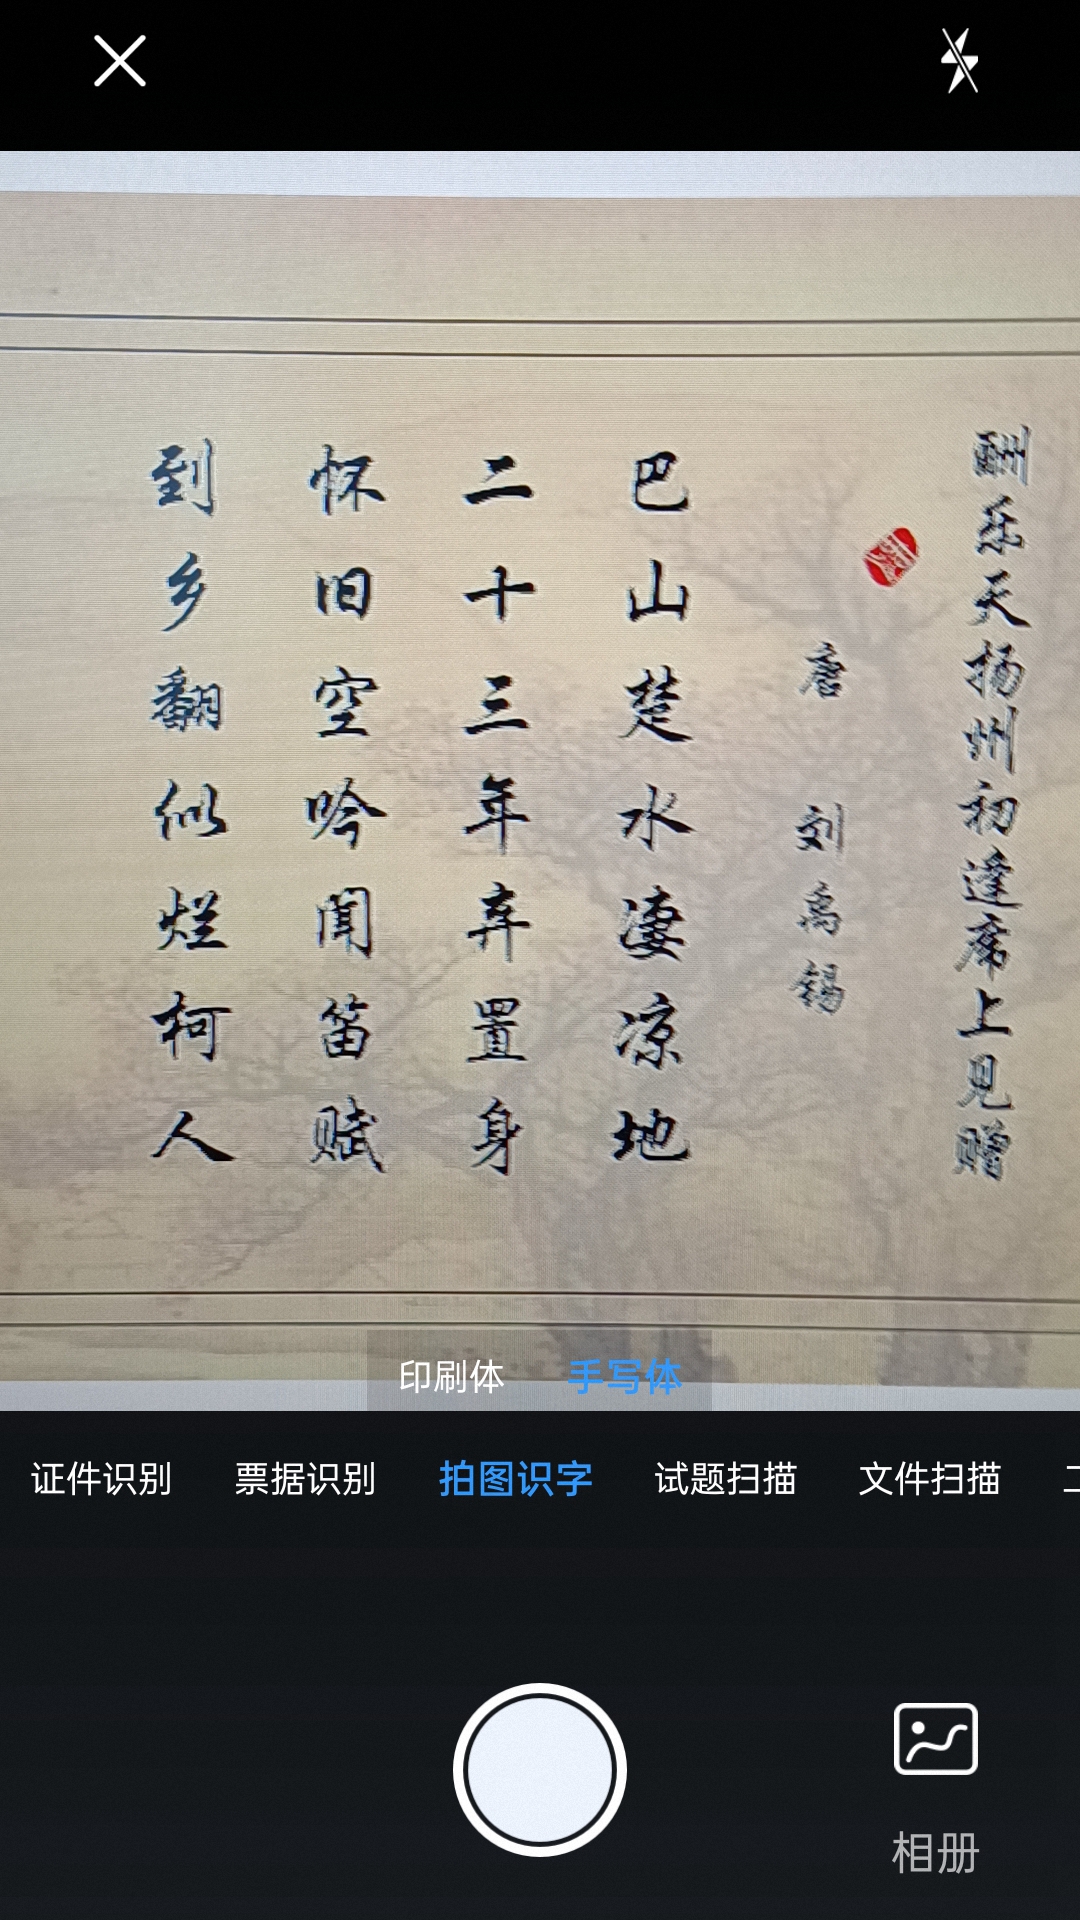 酬乐天扬州初逢席上见赠
唐 刘禹锡
巴山楚水凄凉地
二十三年弃置身
怀旧空吟闻笛赋
到乡翻似烂柯人
印刷体 手写体
证件识别 票据识别 拍图识字 试题扫描 文件扫描
相册